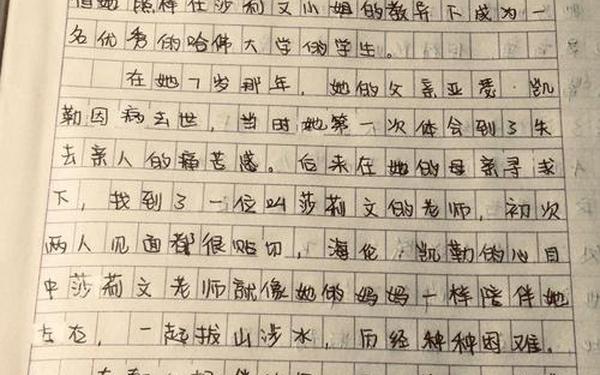 但她照样在莎莉文小姐的教导下成为一
名优秀的哈佛大学的学生。
在她7岁那年,她的父亲亚瑟·凯
勒因病去世,当时她第一次体会到了失
去亲人的痛苦感。后来在她的母亲寻求
下,找到了一位叫莎莉文的老师,初次
两人见面都很贴切,海伦·凯勒的心目
中莎莉文老师就像她的妈妈一样陪伴她
左右,一起拔山涉水,历经种种困难。